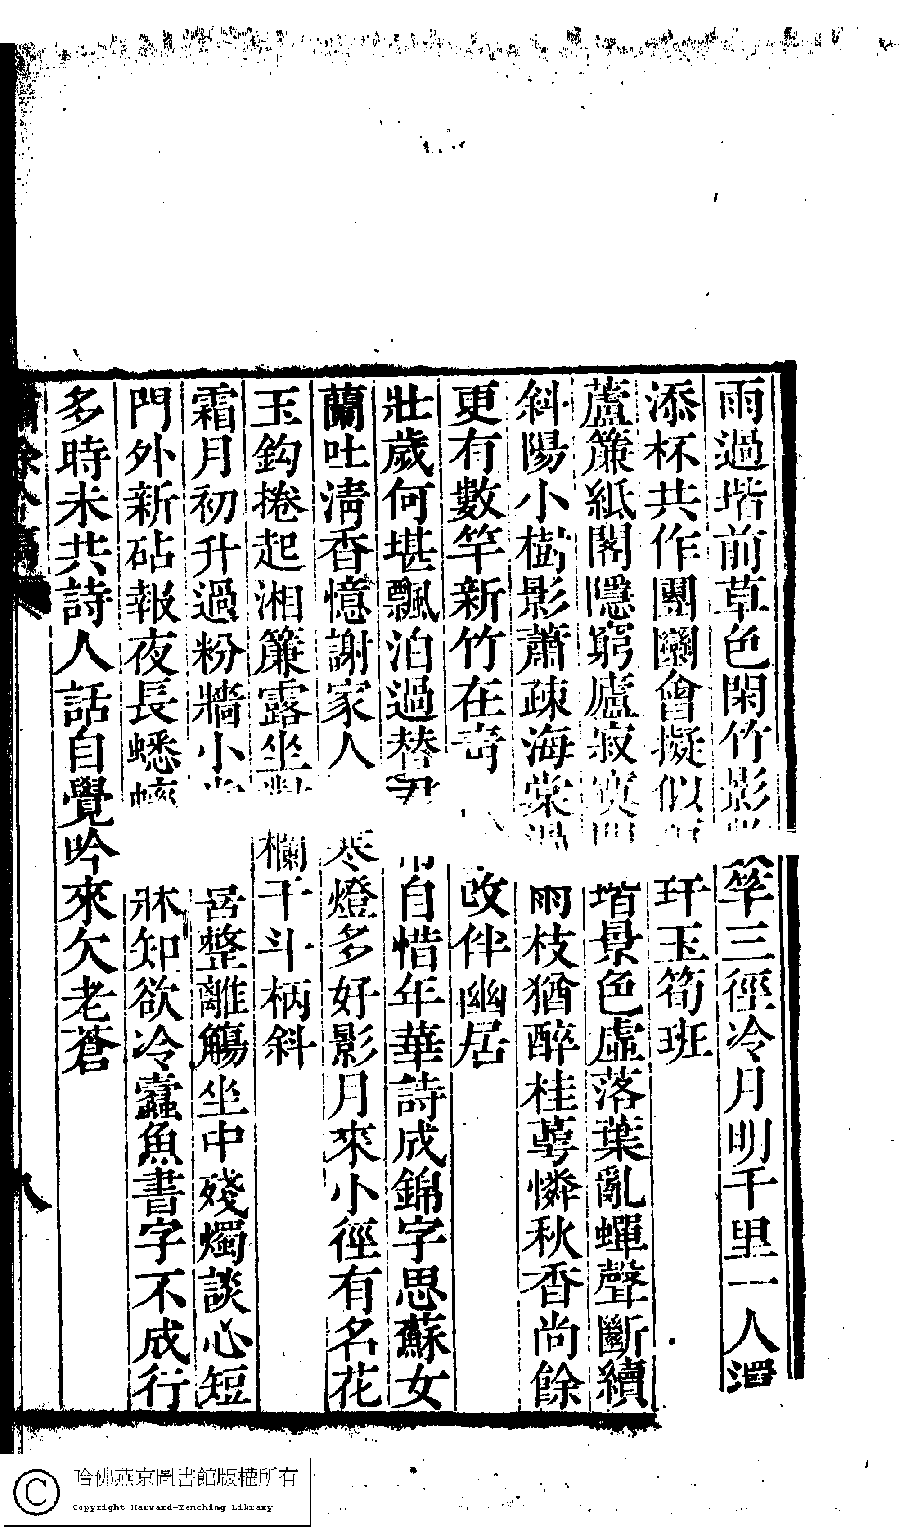 雨過堦前草色閑竹影筞三徑冷月明千里一人還
添杯共作團圞會擬似玕玉筍班
蘆簾紙閣隱窮廬寂寞堦景色虛落葉亂蟬聲斷續
斜陽小樹影蕭疎海棠雨枝猶醉桂萼憐秋香尚餘
更有數竿新竹在改伴幽居
壯歲何堪飄泊過自惜年華詩成錦字思蘇女
蘭吐淸香憶謝家人寒燈多好影月來小徑有名花
玉鈎捲起湘簾露坐對欄干斗柄斜
霜月初升過粉牆小整離觴坐中殘燭談心短
門外新砧報夜長蟋知欲冷蠹魚書字不成行
多時未共詩人話自覺吟來欠老蒼
八
哈佛燕京圖書館版權所有
Copyright Harvard-Yenching Library